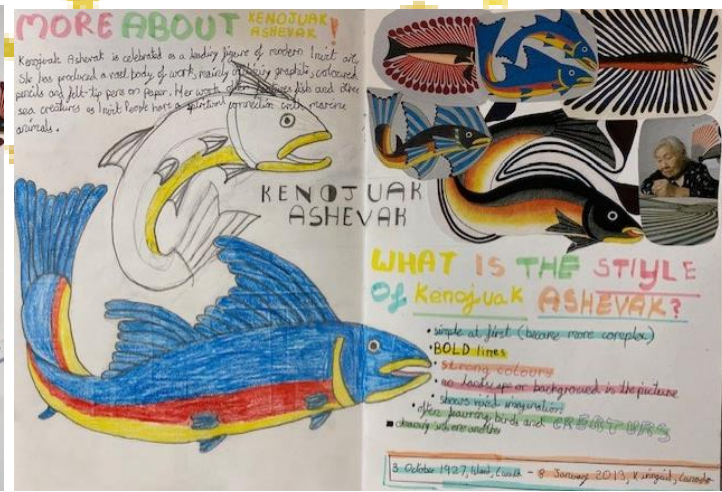 MORE ABOUT KENOJUAK
ASHEVAK !
Kenojuak Ashevak is celebrated as a leading figure of modern Inuit art.
She has produced a vast body of work, mainly graphite, coloured
pencils and felt-tip pens on paper. Her work often features fish and other
sea creatures as Inuit People have a spiritual connection with marine
animals.
KENOJUAK
ASHEVAK
WHAT IS THE STIYLE
Of Kenojuak ASHEVAK?
• simple at first (became more complex)
• BOLD lines
• strong colours
• no landscape or background in the picture
• shows vivid imagination
• often pairing birds and CREATURS
3 October 1927, Canada - 8 January 2013, Kinngait, Canada